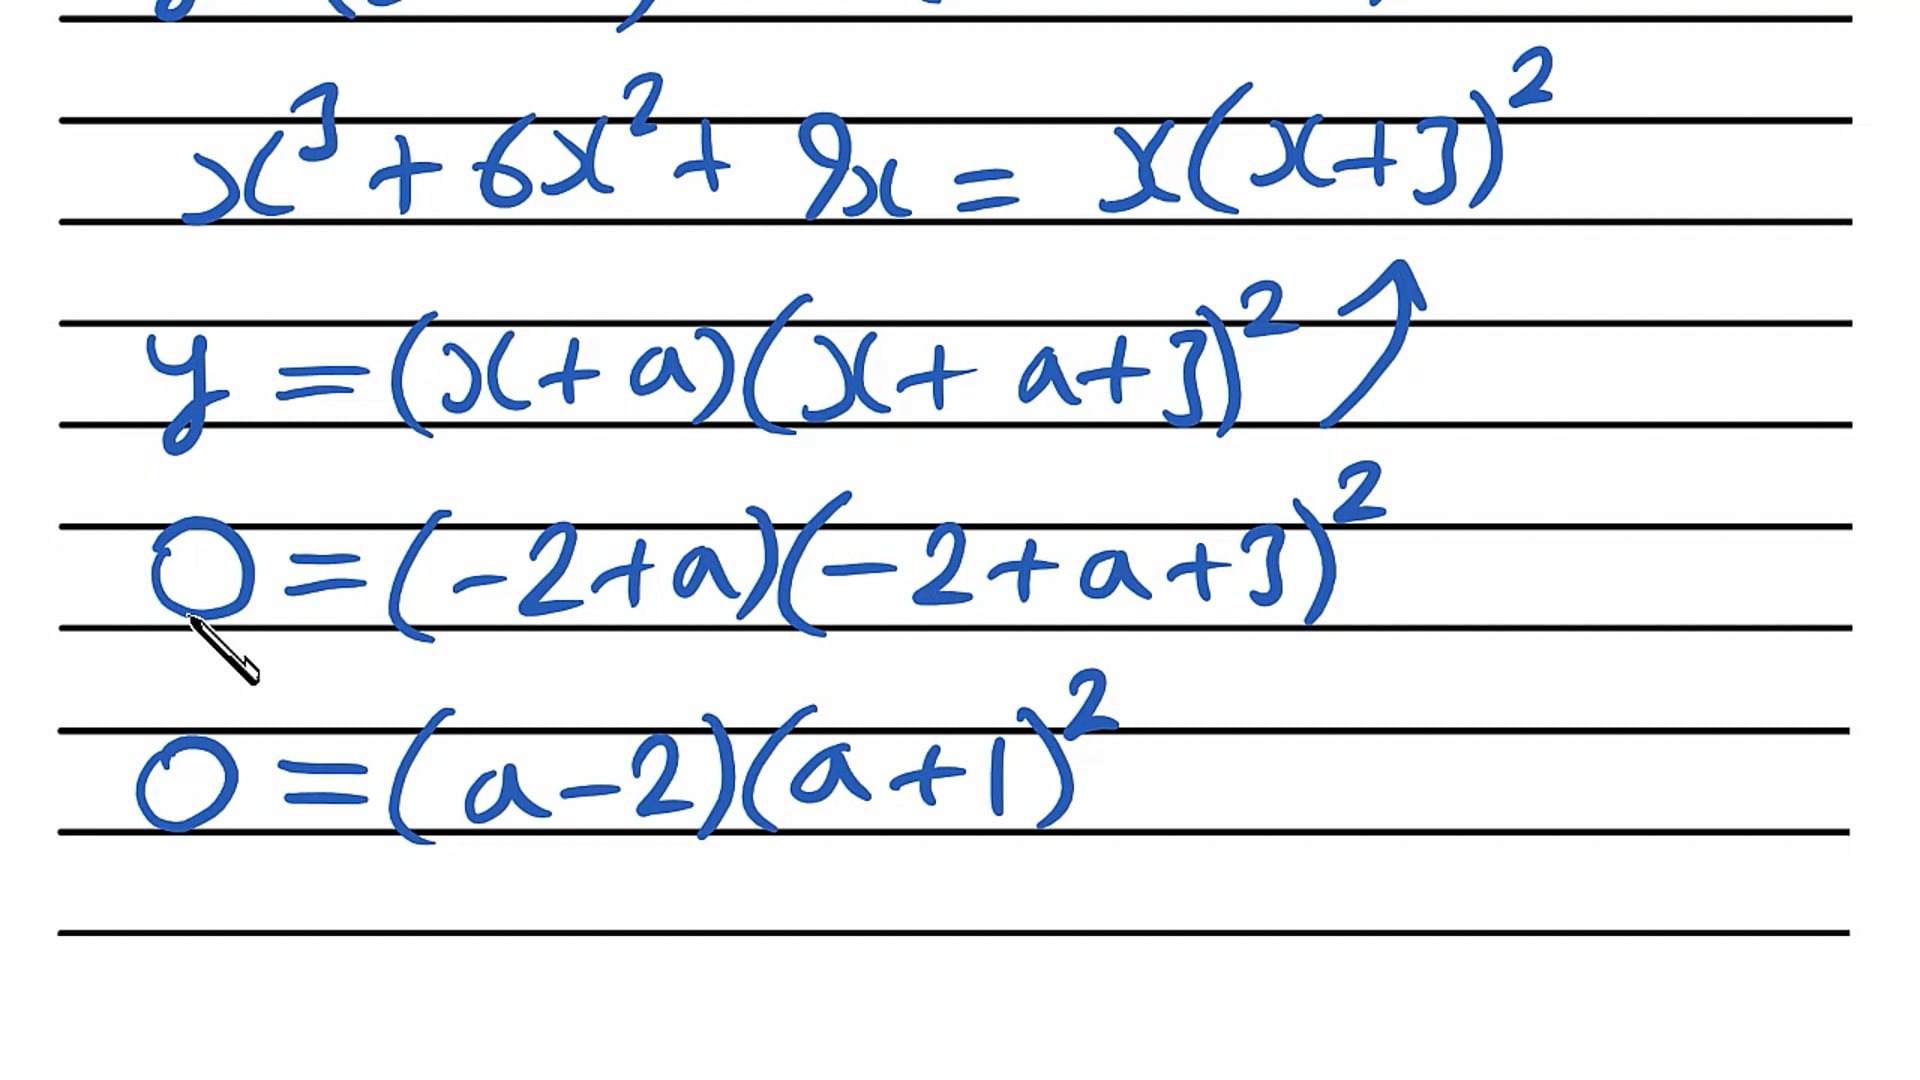 x³ + 6x² + 9x = x(x+3)²
y = (x+a)(x+a+3)²
0 = (-2+a)(-2+a+3)²
0 = (a-2)(a+1)²